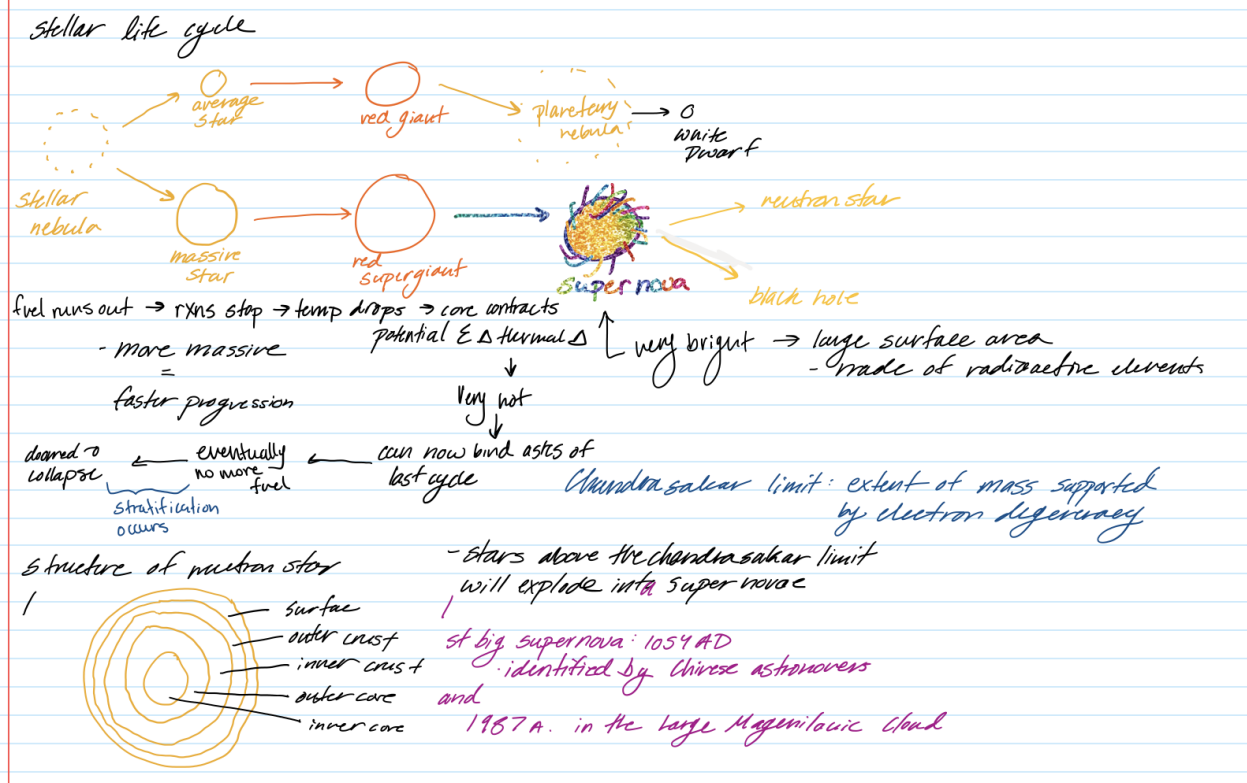 stellar life cycle
average
star
red giant
planetary
nebular
white
Dwarf
stellar
nebula
massive
star
red
supergiant
super nova
neutron star
black hole
fuel runs out → rxns stop → temp drops → core contracts
potential E Δ thermal Δ
very bright → large surface area
- made of radioactive elements
- more massive
=
faster progression
Very hot
can now bind ashes of
last cycle
eventually
no more
fuel
doomed to
collapse
stratification
occurs
Chandrasakar limit: extent of mass supported
by electron degeneracy
- stars above the chandrasakar limit
will explode into a super novae
structure of neutron star
surfae
outer crust
inner crust
outer core
inner core
st big supernova: 1054 AD
· identified by Chinese astronovers
and
1987 A. in the Large Magenilauic Cloud